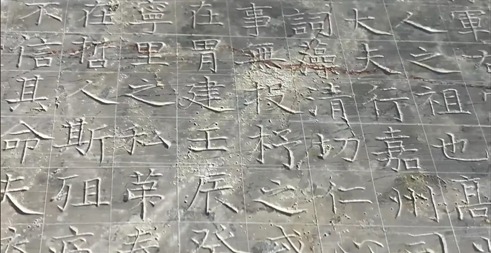 軍
人之祖也高
大夫行嘉州司
詞藻清切仁
事無投杼之或
在胃建壬辰癸
寧里之私第
在哲人斯殂
不信其命夫